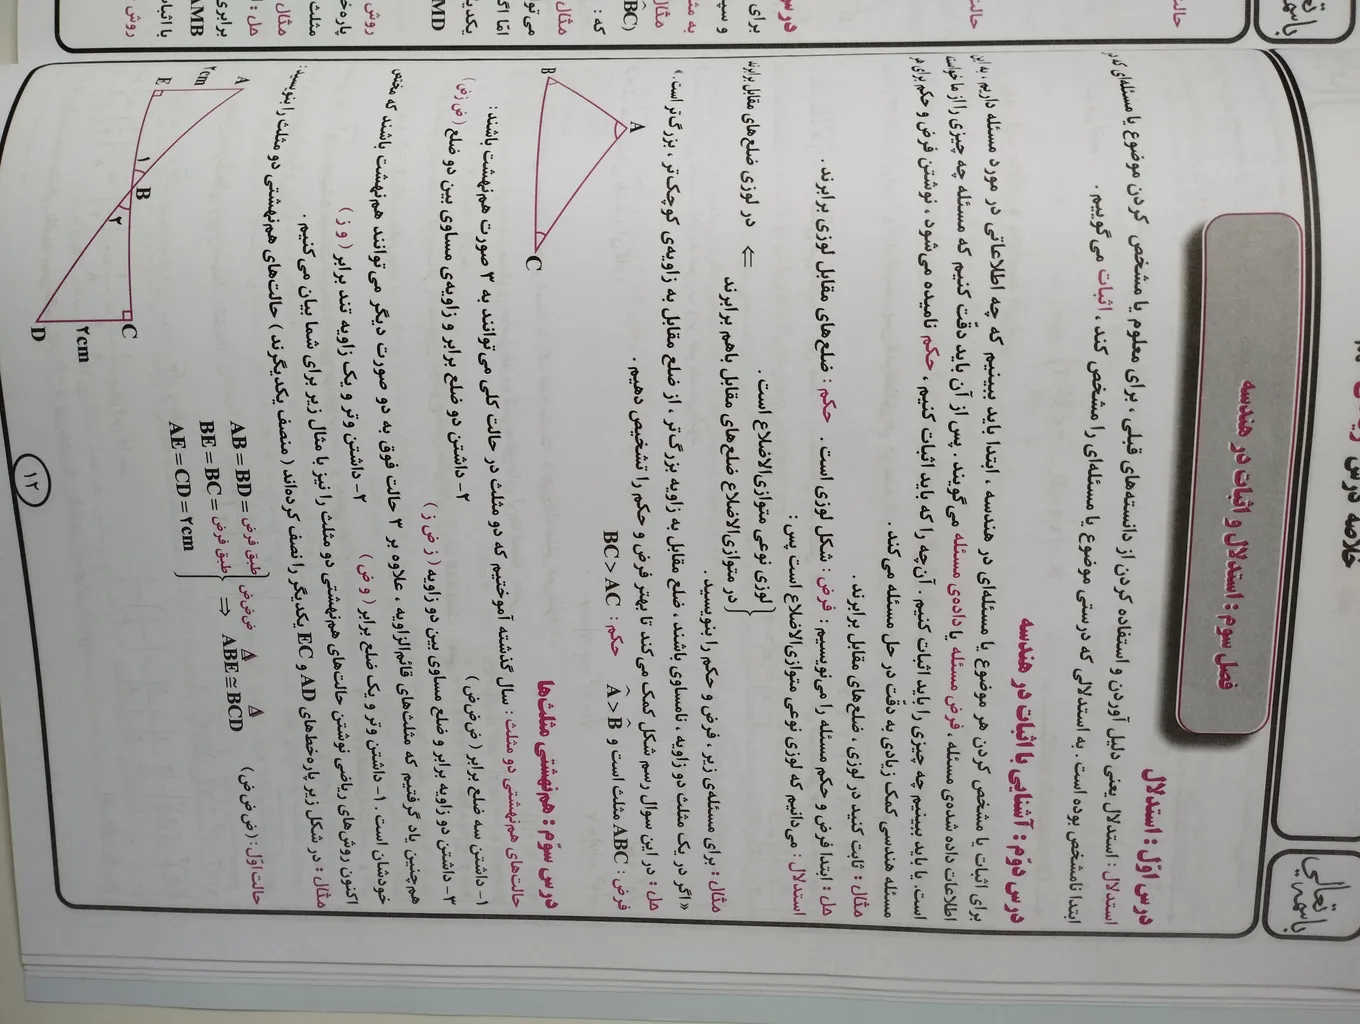 باسمه تعالی
خلاصه درس
فصل سوم : استدلال و اثبات در هندسه
درس اوّل : استدلال
استدلال : استدلال یعنی دلیل آوردن و استفاده کردن از دانسته‌های قبلی ، برای معلوم یا مشخص کردن موضوع یا مسئله‌ای که در
ابتدا نامشخص بوده است . به استدلالی که درستی موضوع یا مسئله‌ای را مشخص کند ، اثبات می گوییم .
درس دوّم : آشنایی با اثبات در هندسه
برای اثبات یا مشخص کردن هر موضوع یا مسئله‌ای در هندسه ، ابتدا باید ببینیم که چه اطلاعاتی در مورد مسئله داریم ، به این
اطلاعات داده شده‌ی مسئله ، فرض مسئله یا داده‌ی مسئله می گویند . پس از آن باید دقّت کنیم که مسئله چه چیزی را از ما خواسته
است. یا باید ببینیم چه چیزی را باید اثبات کنیم . آن‌چه را که باید اثبات کنیم ، حکم نامیده می شود ، نوشتن فرض و حکم برای هر
مسئله هندسی کمک زیادی به دقّت در حل مسئله می کند .
مثال : ثابت کنید در لوزی ، ضلع‌های مقابل برابرند .
حل : ابتدا فرض و حکم مسئله را می نویسیم : فرض : شکل لوزی است . حکم : ضلع‌های مقابل لوزی برابرند .
استدلال : می دانیم که لوزی نوعی متوازی‌الاضلاع است پس :
لوزی نوعی متوازی‌الاضلاع است .
در متوازی‌الاضلاع ضلع‌های مقابل باهم برابرند
⇒ در لوزی ضلع‌های مقابل برابرند
مثال : برای مسئله‌ی زیر ، فرض و حکم را بنویسید .
« اگر در یک مثلث دو زاویه ، نامساوی باشند ، ضلع مقابل به زاویه بزرگ‌تر ، از ضلع مقابل به زاویه‌ی کوچک‌تر ، بزرگ‌تر است .»
حل : در این سوال رسم شکل کمک می کند تا بهتر فرض و حکم را تشخیص دهیم .
فرض : ABC مثلث است و Â > B̂ حکم : BC > AC
A
B
C
درس سوّم : هم‌نهشتی مثلث‌ها
حالت‌های هم‌نهشتی دو مثلث : سال گذشته آموختیم که دو مثلث در حالت کلی می توانند به ۳ صورت هم‌نهشت باشند :
۱- داشتن سه ضلع برابر ( ض ض ض ) ۲- داشتن دو ضلع برابر و زاویه‌ی مساوی بین دو ضلع ( ض ز ض )
۳- داشتن دو زاویه برابر و ضلع مساوی بین دو زاویه ( ز ض ز )
هم‌چنین یاد گرفتیم که مثلث‌های قائم‌الزاویه ، علاوه بر ۳ حالت فوق به دو صورت دیگر می توانند هم‌نهشت باشند که مختص
خودشان است . ۱- داشتن وتر و یک ضلع برابر ( و ض ) ۲- داشتن وتر و یک زاویه تند برابر ( و ز )
اکنون روش‌های ریاضی نوشتن حالت‌های هم‌نهشتی دو مثلث را نیز با مثال زیر برای شما بیان می کنیم .
مثال : در شکل زیر پاره‌خط‌های AD و EC یکدیگر را نصف کرده‌اند ( منصف یکدیگرند ) حالت‌های هم‌نهشتی دو مثلث را بنویسید:
حالت اوّل : ( ض ض ض )
AB = BD = طبق فرض
BE = BC = طبق فرض
AE = CD = ۲cm
ض ض ض ⇒ ABE ≅ BCD
A
۲cm
E
۱
B
۲
C
۲cm
D
۱۲